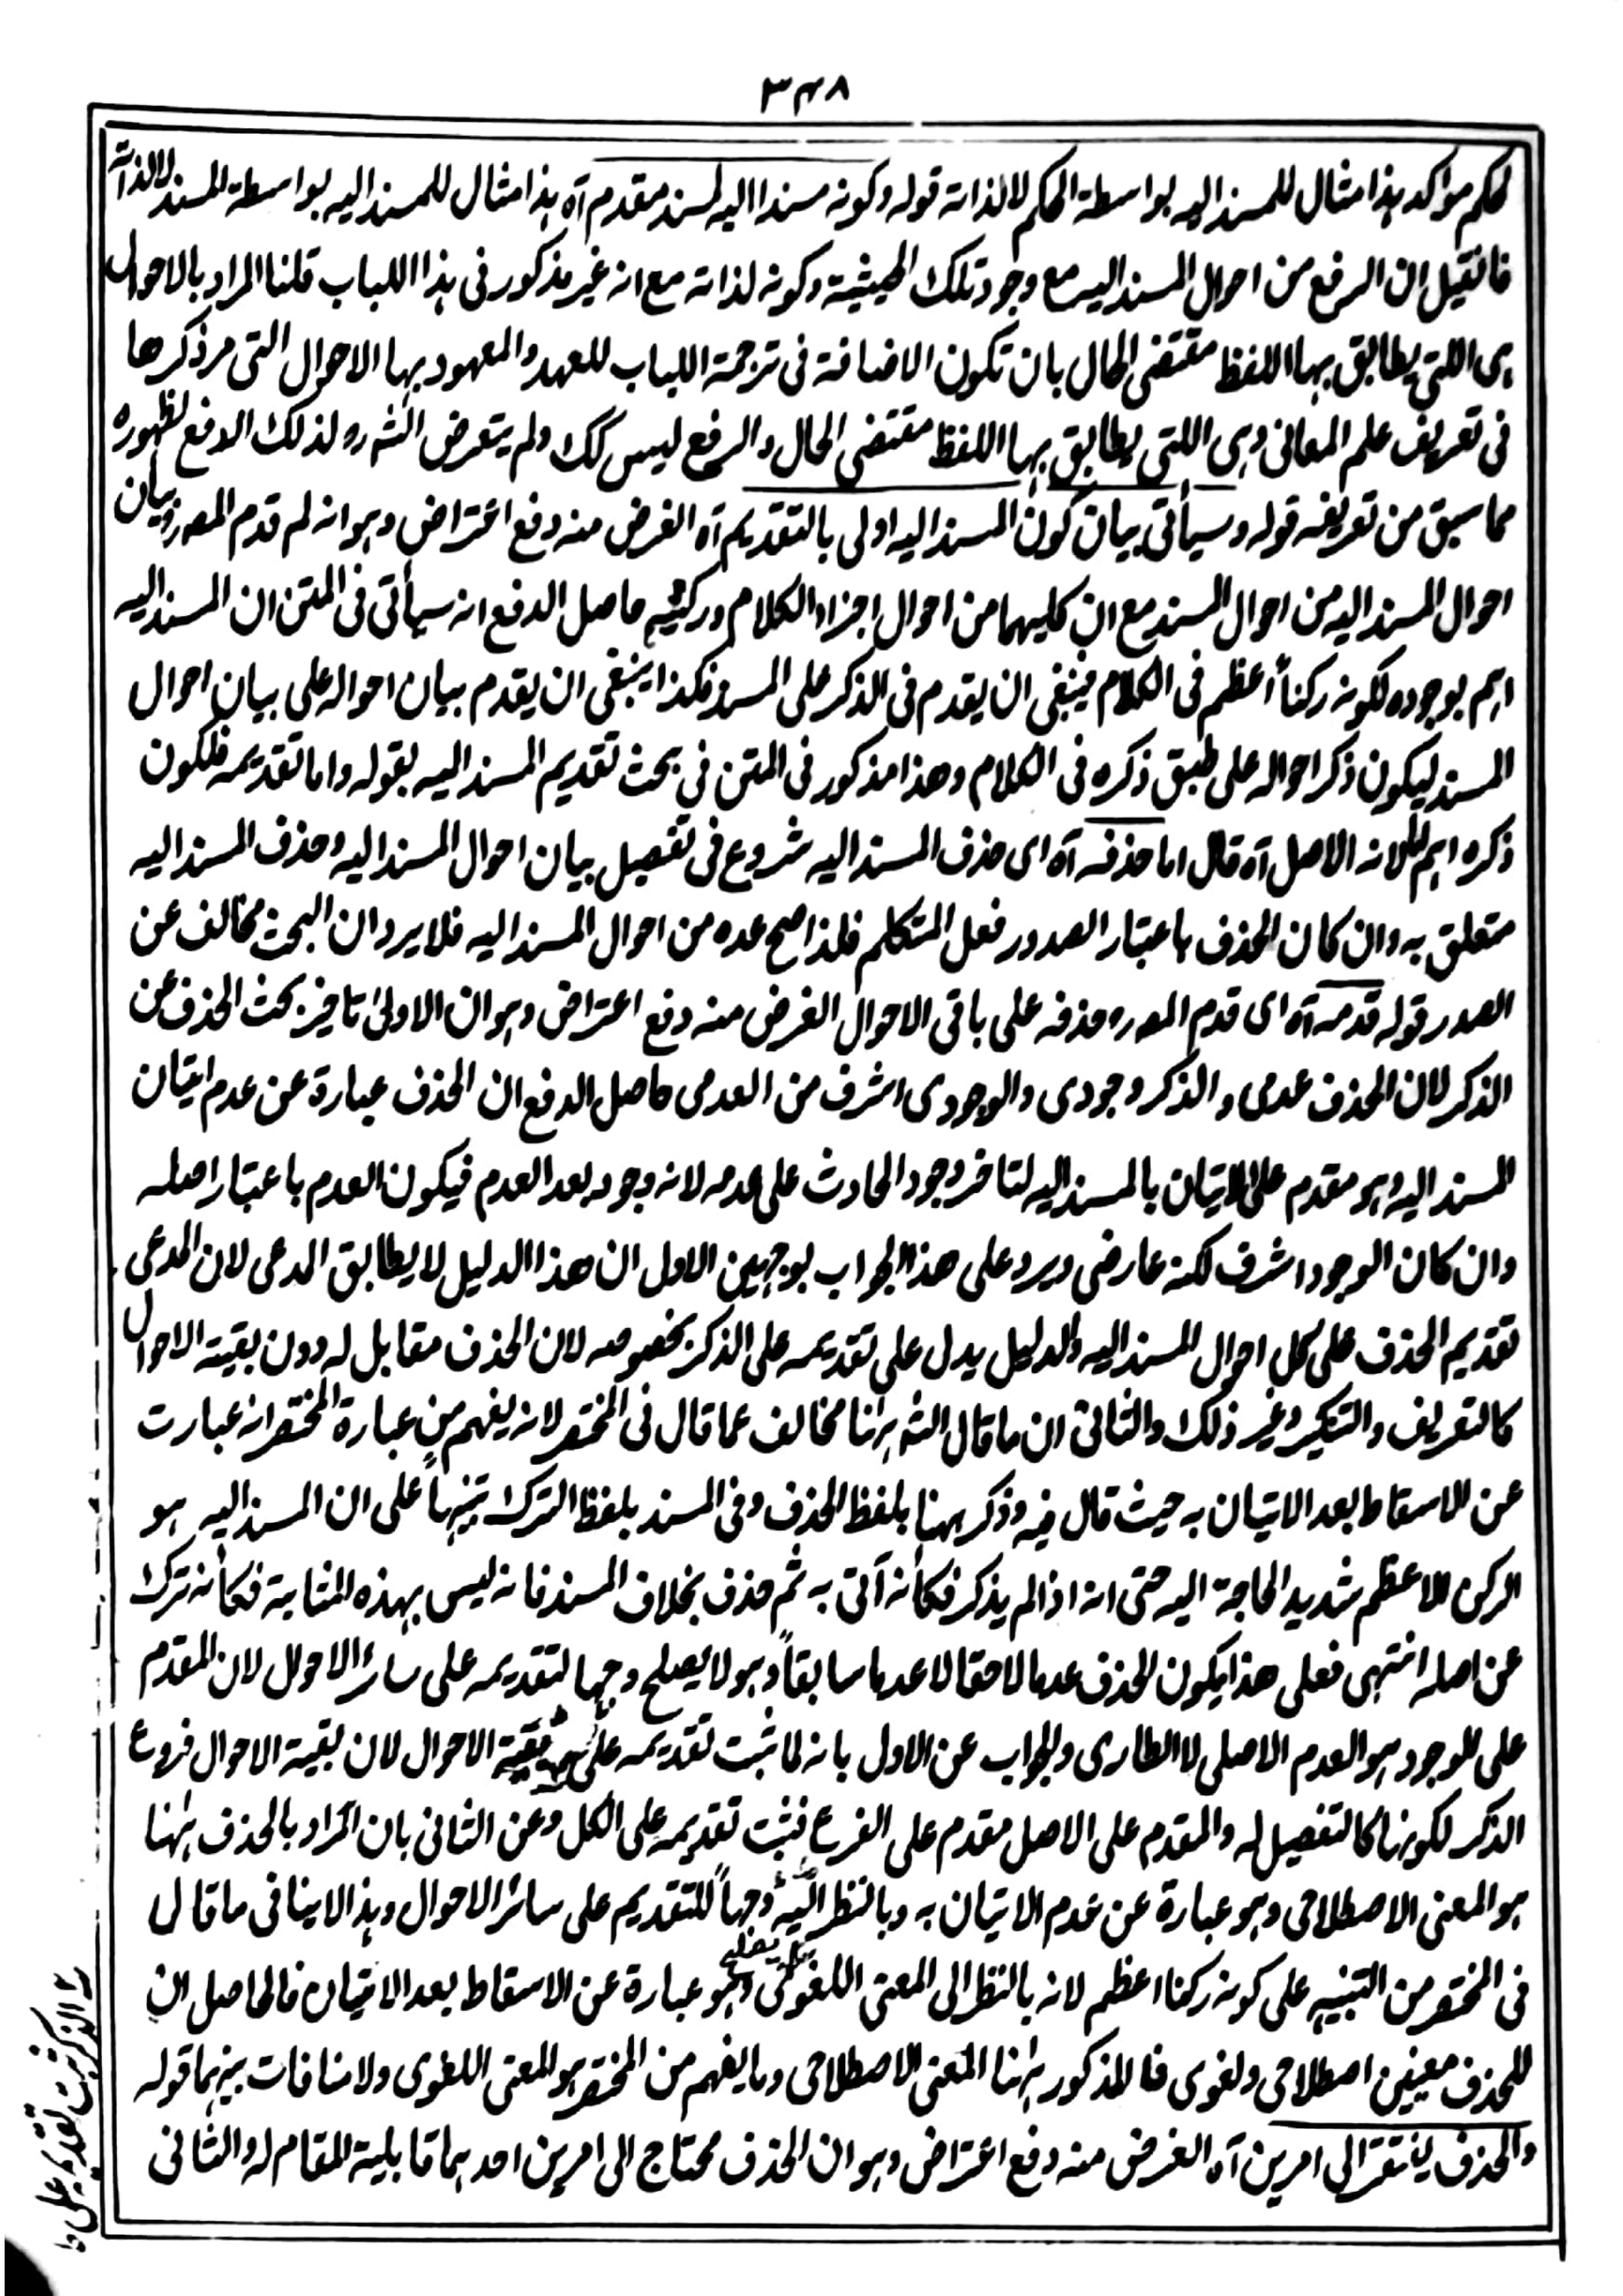 ٣٤٨
لحكم مؤكد هذا مثال للمسند اليه بواسطة الحكم لا لذاته قوله وكونه مسندا اليه لمسند مقدم آه هذا مثال للمسند اليه بواسطة المسند لا لذاته
فان قيل ان الرفع من احوال المسند اليه مع وجود تلك الحيثية وكونه لذاته مع انه غير مذكور فى هذا الباب قلنا المراد بالاحوال
هى اللتى يطابق بها اللفظ مقتضى الحال بان تكون الاضافة فى ترجمة الباب للعهد والمعهود بها الاحوال التى مر ذكرها
فى تعريف علم المعانى وهى اللتى يطابق بها اللفظ مقتضى الحال والرفع ليس كك ولم يتعرض الشه ره لذلك الدفع لظهوره
مما سبق من تعريفه قوله وسيأتى بيان كون المسند اليه اولى بالتقديم آه الغرض منه دفع اعتراض وهو انه لم قدم المصره بيان
احوال المسند اليه من احوال المسند مع ان كليهما من احوال اجزاء الكلام وركنيه حاصل الدفع انه سيأتى فى المتن ان المسند اليه
اهم بوجوده لكونه ركناً اعظم فى الكلام فينبغى ان يقدم فى الذكر على المسند فكذا ينبغى ان يقدم بيان احواله على بيان احوال
المسند ليكون ذكر احواله على طبق ذكره فى الكلام وهذا مذكور فى المتن فى بحث تقديم المسند اليه بقوله واما تقديمه فلكون
ذكره اهم لانه الاصل آه قال اما حذفه آه اى حذف المسند اليه شروع فى تفصيل بيان احوال المسند اليه وحذف المسند اليه
متعلق به وان كان الحذف باعتبار الصدور فعل المتكلم فلذا صح عده من احوال المسند اليه فلا يرد ان البحث مخالف عن
الصدر قوله قدمه آه اى قدم المصره حذفه على باقى الاحوال الغرض منه دفع اعتراض وهو ان الاولى تاخير بحث الحذف عن
الذكر لان الحذف عدمى والذكر وجودى والوجودى اشرف من العدمى حاصل الدفع ان الحذف عبارة عن عدم اتيان
المسند اليه وهو مقدم على الاتيان بالمسند اليه لتاخر وجود الحادث على عدمه لانه وجود بعد العدم فيكون العدم باعتبار اصله
وان كان الوجود اشرف لكنه عارضى ويرد على هذا الجواب بوجهين الاول ان هذا الدليل لا يطابق المدعى لان المدعى
تقديم الحذف على كل احوال المسند اليه والدليل يدل على تقديمه على الذكر بخصوصه لان الحذف مقابل له دون بقية الاحوال
كالتعريف والتنكير وغير ذلك والثانى ان ما قال الشه هٰهنا مخالف عما قال فى المختصر لانه يفهم من عبارة المختصر انه عبارت
عن الاسقاط بعد الاتيان به حيث قال فيه وذكر ههنا بلفظ الحذف وفى المسند بلفظ الترك تنبيهاً على ان المسند اليه هو
الركن الاعظم شديد الحاجة اليه حتى انه اذا لم يذكر فكأنه اتى به ثم حذف بخلاف المسند فانه ليس بهذه المثابة فكأنه ترك
عن اصله انتهى فعلى هذا يكون الحذف عدما لاحقا لا عدما سابقاً وهو لا يصلح وجها لتقديمه على سائر الاحوال لان المقدم
على الوجود هو العدم الاصلى لا الطارى والجواب عن الاول بانه لما ثبت تقديمه على بقية الاحوال لان بقية الاحوال فروع
الذكر لكونها كالتفصيل له والمقدم على الاصل مقدم على الفرع فثبت تقديمه على الكل وعن الثانى بان المراد بالحذف هٰهنا
هو المعنى الاصطلاحى وهو عبارة عن عدم الاتيان به وبالنظر اليه وجهاً للتقديم على سائر الاحوال وهذا لا ينافى ما قال
فى المختصر من التنبيه على كونه ركنا اعظم لانه بالنظر الى المعنى اللغوى وهو عبارة عن الاسقاط بعد الاتيان فالحاصل ان
للحذف معنيين اصطلاحى ولغوى فالمذكور هٰهنا المعنى الاصطلاحى وما يفهم من المختصر هو المعنى اللغوى ولا منافات بينهما قوله
والحذف يفتقر الى امرين آه الغرض منه دفع اعتراض وهو ان الحذف محتاج الى امرين احدهما قابلية المقام له والثانى
الذكر ثبت تقديمه على